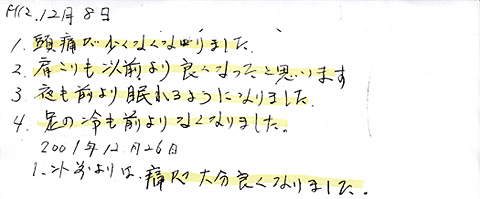 H12.12月8日
1. 頭痛が少くなくなりました.
2. 肩こりも以前より良くなったと思います
3 夜も前より眠れるようになりました.
4. 足の冷も前よりなくなりました。
2001年12月26日
1. 以前よりは、痛みが大分良くなりました。